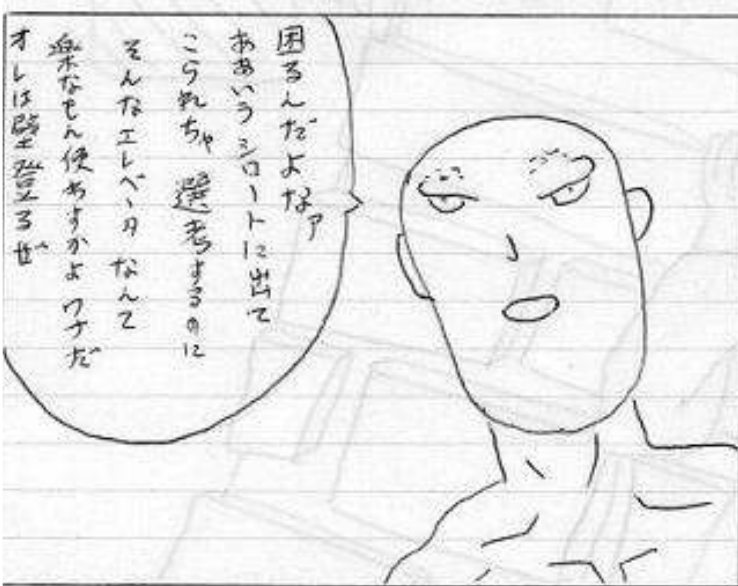 困るんだよなァ
ああいうシロートに出て
こられちゃ 選考するのに
そんなエレベータなんて
楽なもん使わすかよワナだ
オレは壁登るぜ